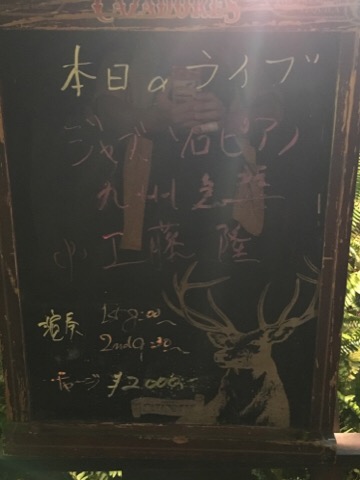 本日のライブ
ジャズソロピアノ
九州
工藤 隆
演奏 1st 8:00〜
2nd 9:30〜
チャージ ¥2000